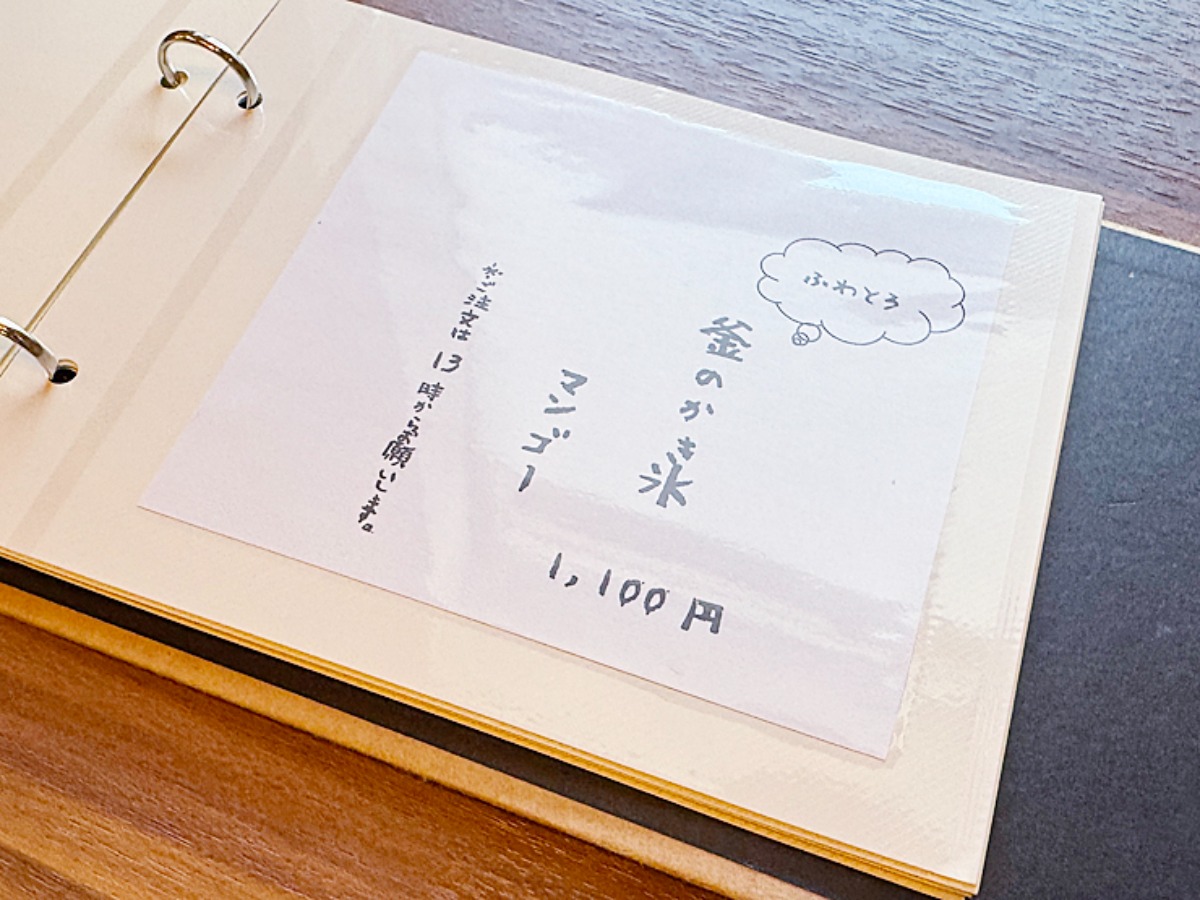 ふわとろ
釜のかき氷
マンゴー
1,100円
※ご注文は13時からお願いします。